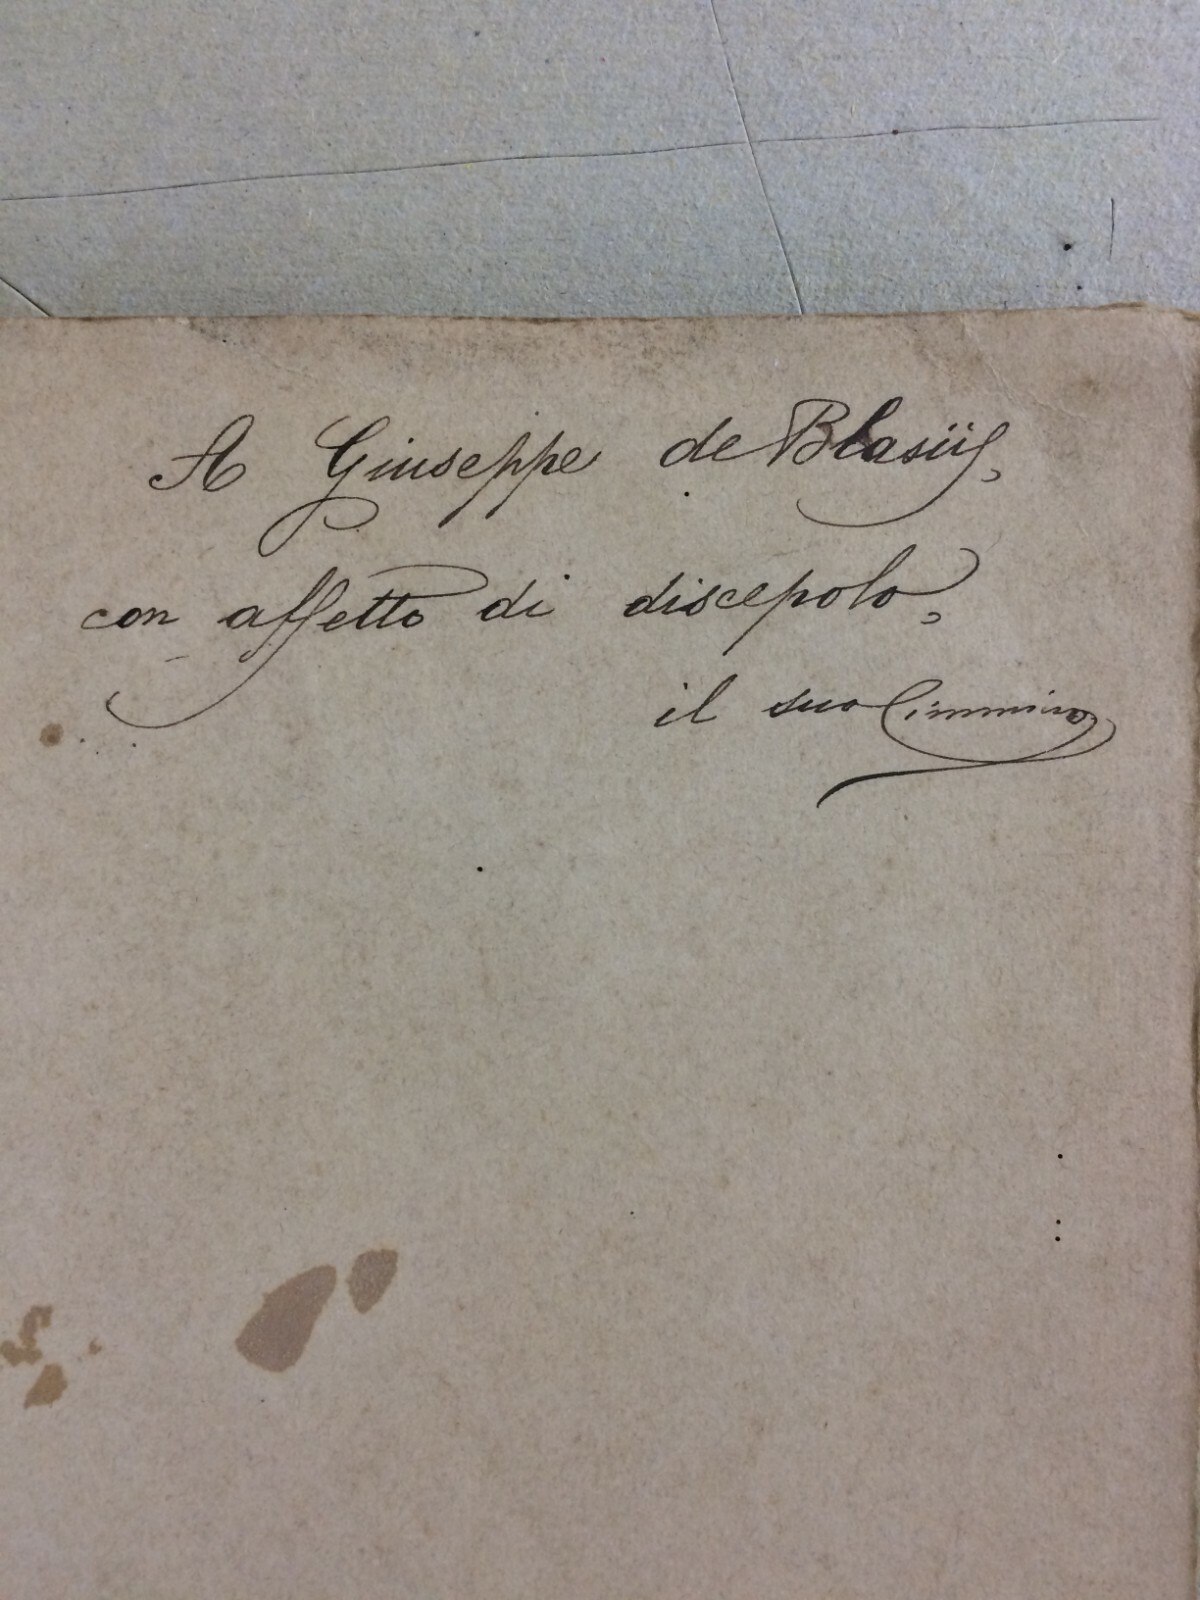 A Giuseppe de Blasiis,
con affetto di discepolo,
il suo Cimmino